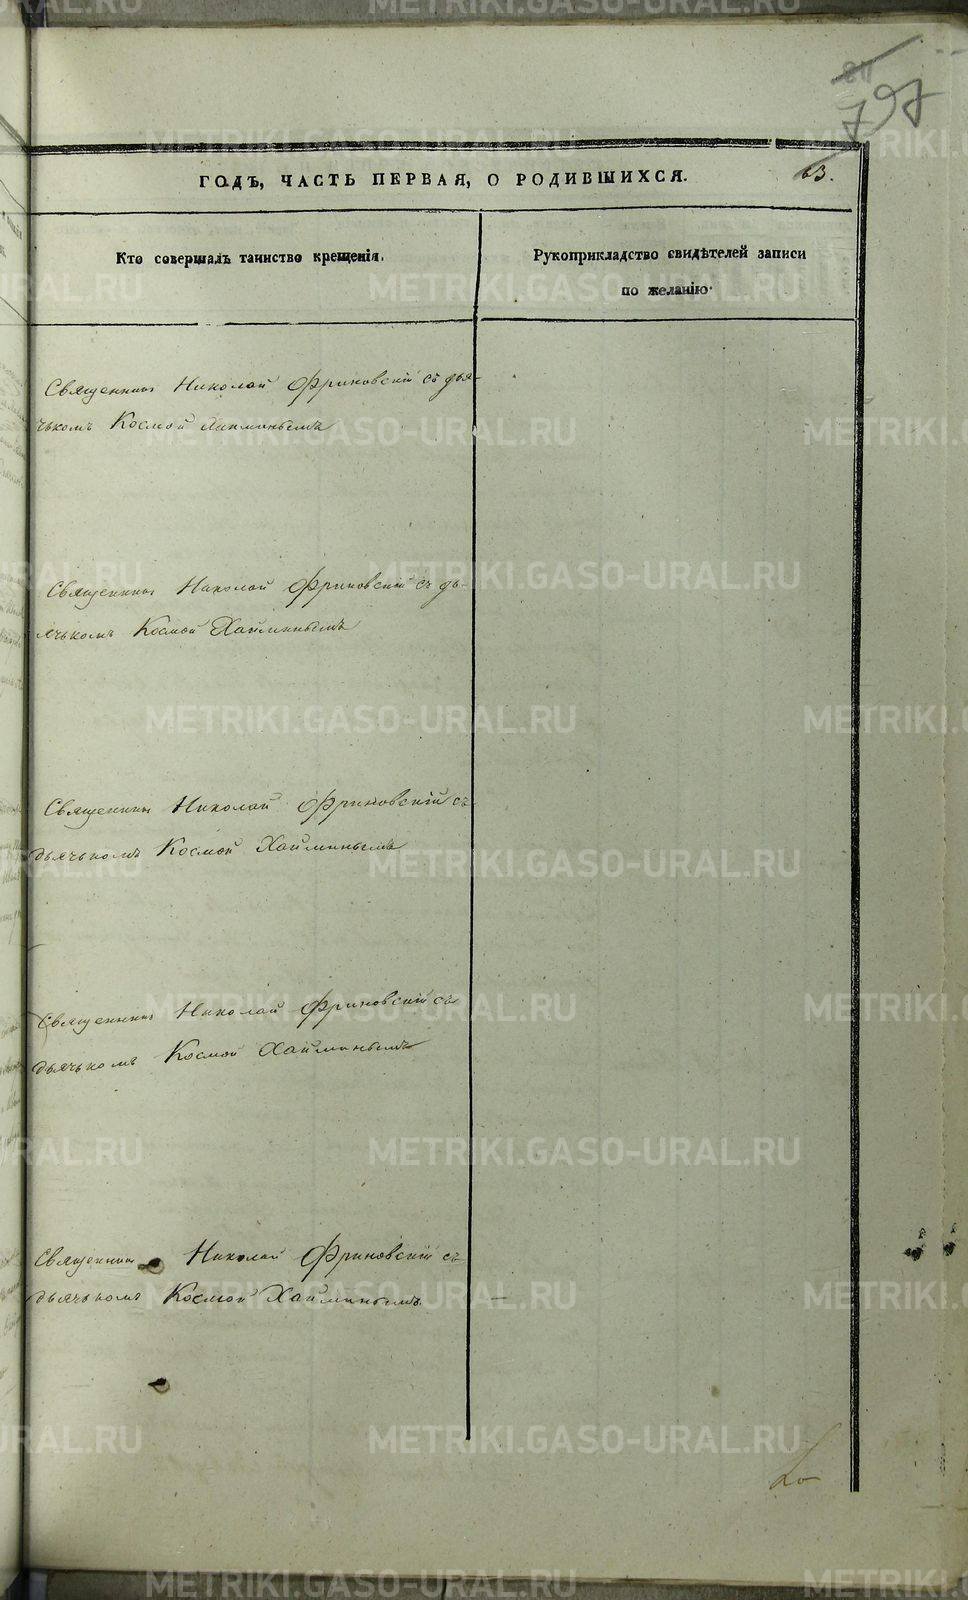 797
63.
ГОДЪ, ЧАСТЬ ПЕРВАЯ, О РОДИВШИХСЯ.
Кто совершалъ таинство крещенія.
Рукоприкладство свидѣтелей записи
по желанію.
Священникъ Николай Фриновскій съ дья-
чькомъ Космой Хайминымъ
Священникъ Николай Фриновскій съ дь-
ячькомъ Космой Хайминымъ
Священникъ Николай Фриновскій съ
дьячькомъ Космой Хайминымъ
Священникъ Николай Фриновскій съ
дьячькомъ Космой Хайминымъ
Священникъ Николай Фриновскій съ
дьячькомъ Космой Хайминымъ
METRIKI.GASO-URAL.RU